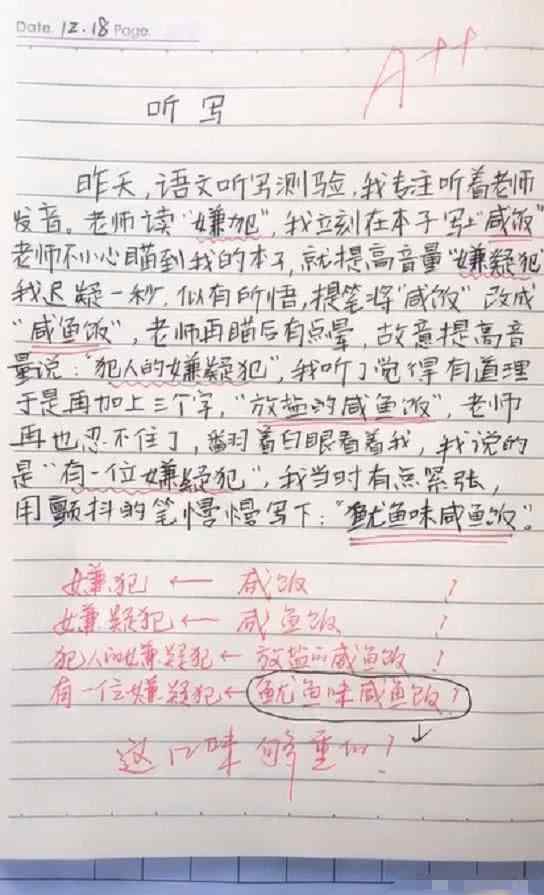 Date. 12.18 Page.
A++
听写
昨天，语文听写测验，我专注听着老师
发音。老师读“嫌犯”，我立刻在本子写上“咸饭”
老师不小心瞄到我的本子，就提高音量“嫌疑犯”
我迟疑一秒，似有所悟，提笔将“咸饭”改成
“咸鱼饭”，老师再瞄后有点晕，故意提高音
量说：“犯人的嫌疑犯”，我听了觉得有道理
于是再加上三个字，“放盐的咸鱼饭”，老师
再也忍不住了，翻着白眼看着我，我说的
是“有一位嫌疑犯”，我当时有点紧张，
用颤抖的笔慢慢写下：“鱿鱼味咸鱼饭”。
嫌犯 ← 咸饭 ？
嫌疑犯 ← 咸鱼饭 ？
犯人的嫌疑犯 ← 放盐的咸鱼饭 ？
有一位嫌疑犯 ← 鱿鱼味咸鱼饭？
这口味够重的！